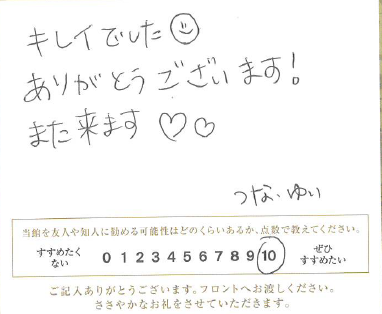 キレイでした
ありがとうございます!
また来ます♡♡
つな、ゆい
当館を友人や知人に勧める可能性はどのくらいあるか、点数で教えてください。
すすめたくない 0 1 2 3 4 5 6 7 8 9 10 ぜひすすめたい
ご記入ありがとうございます。フロントへお渡しください。
ささやかなお礼をさせていただきます。